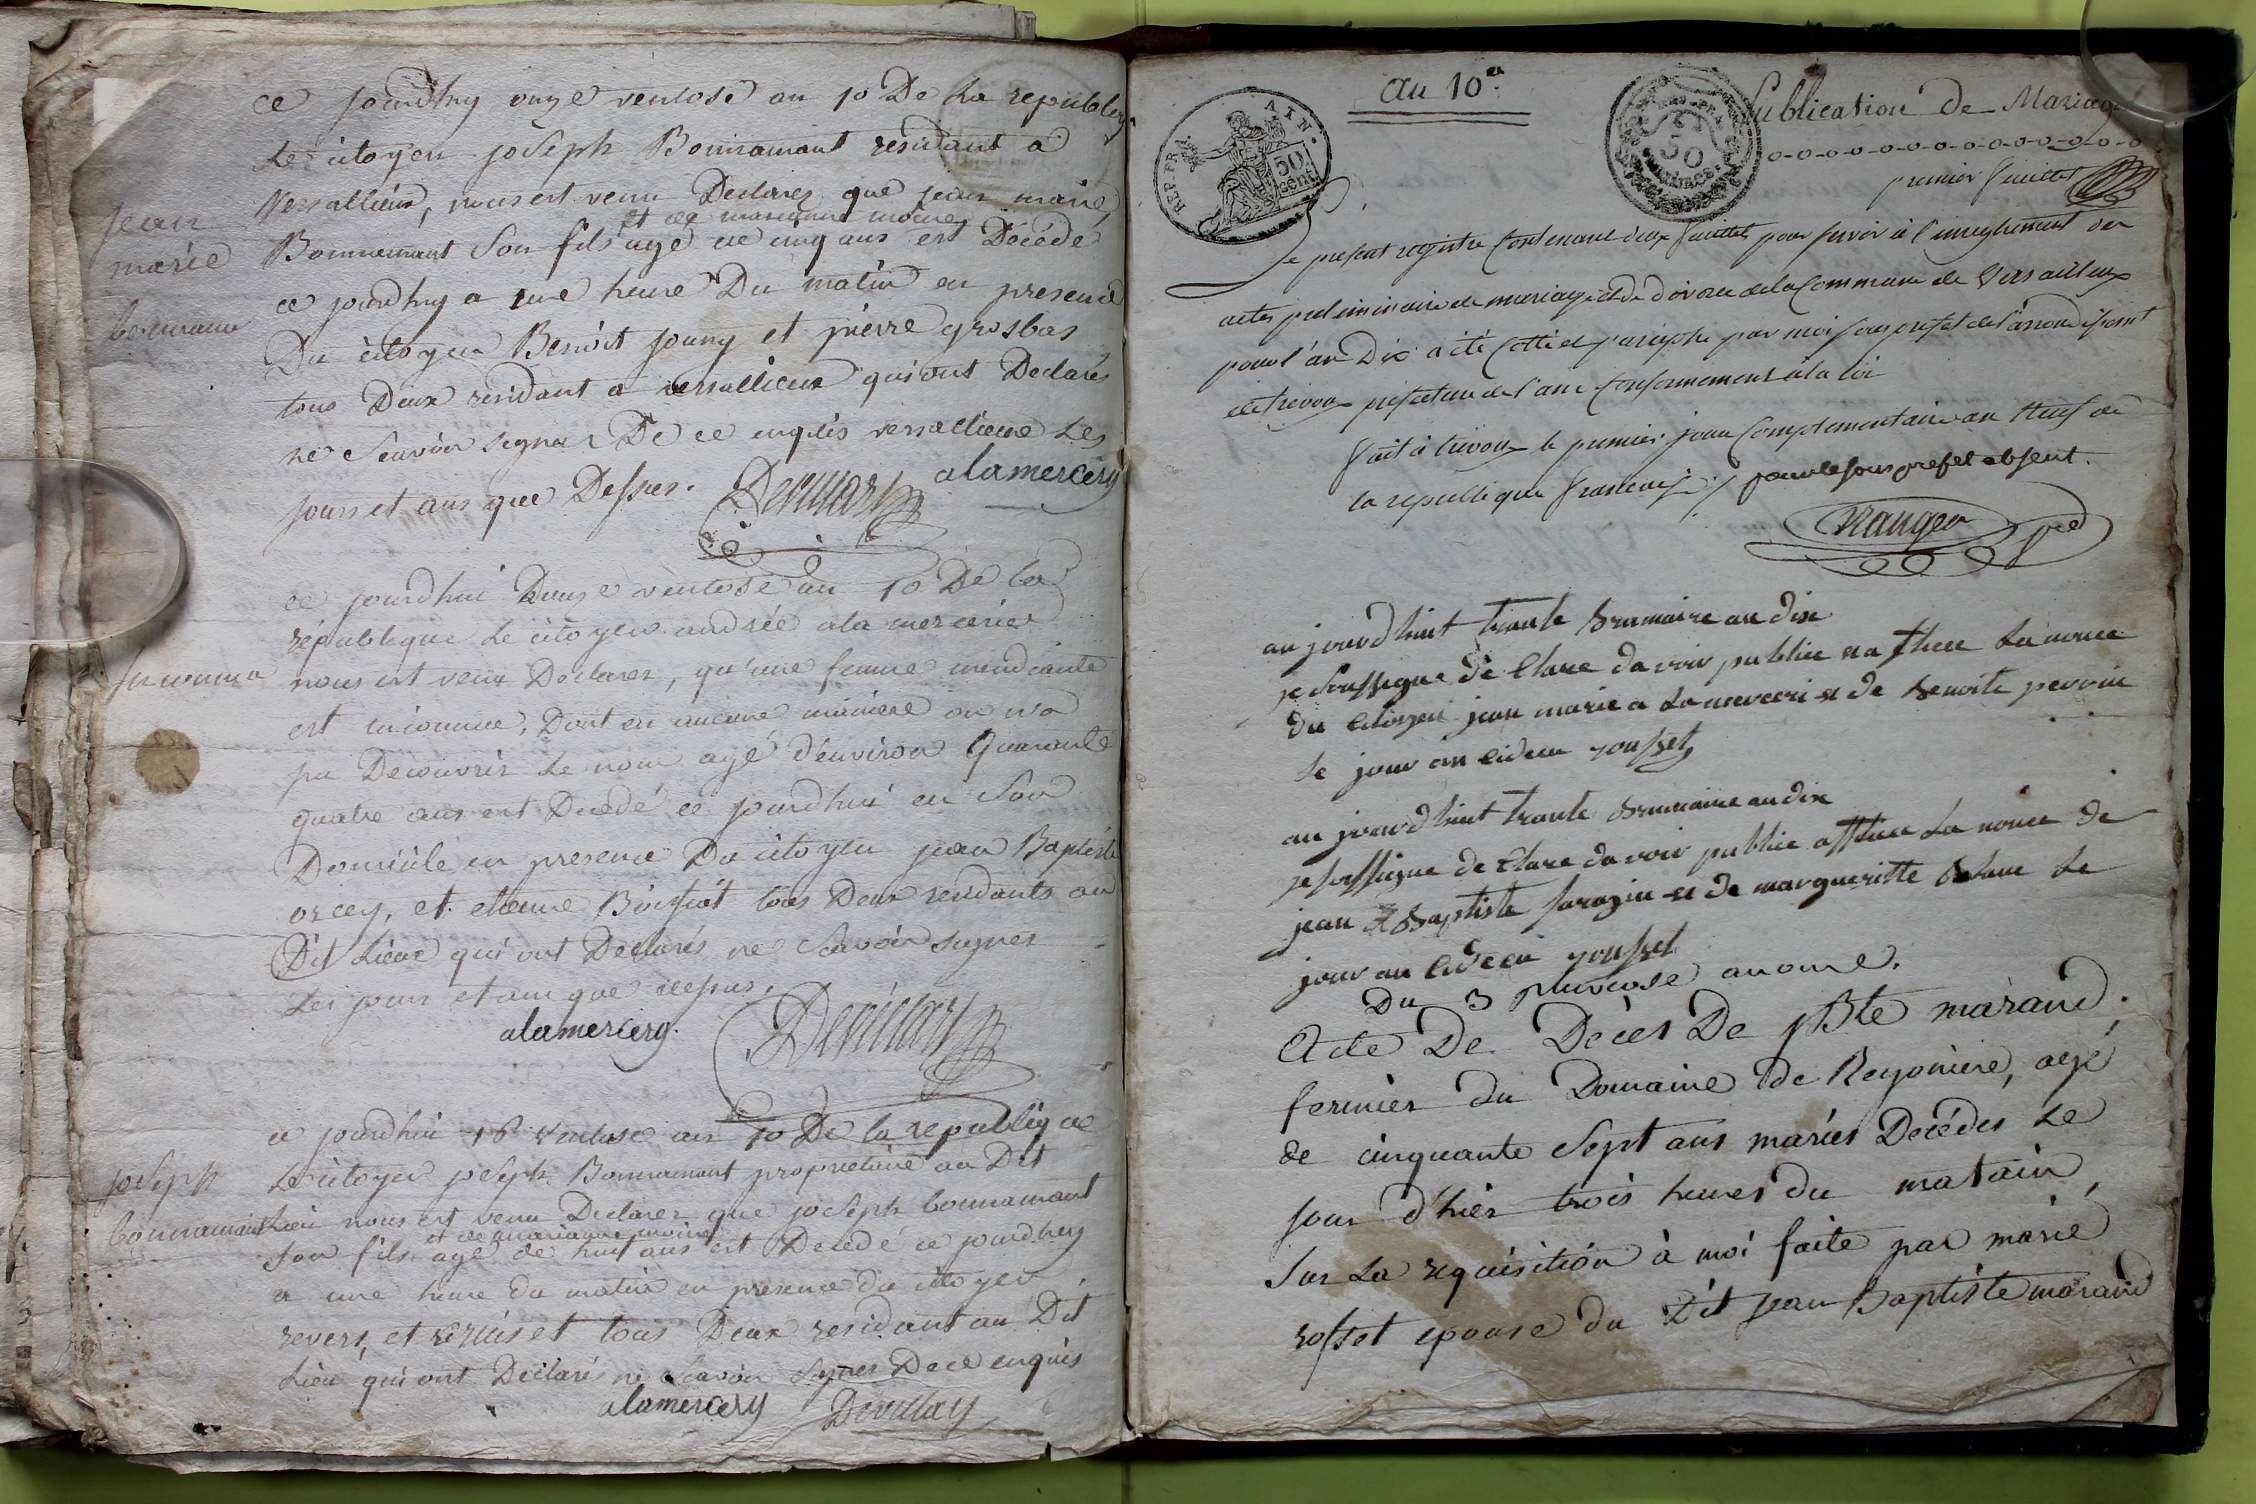 ce jourdhuy onze ventose an 10 De La republiq
Le citoyen joseph Bonnamant residant a
Versallieux, nous est venu Declarer que jean marie
et de marianne moine
Bonnemant son fils agé de cinq ans est Décédé
ce jourdhuy a une heure Du matin en presence
Du citoyen Benoit jouny et pierre grosbas
tous Deux residant a versallieux qui ont Declarés
ne Scavoir signer De ce enquis versallieux Les
jours et ans que Dessus.
Devillars alamercery
jean
marie
bonnamant
ce jourdhui Douze ventose an 10 De la
république Le citoyen andrée alamercerie
nous est venu Déclarer, qu'une femme mendiante
est inconnue, Dont en aucune maniere on n'a
pu Découvrir Le nom agé d'environ Quarante
quatre ans est Decedé ce jourdhui en Son
Domicile en presence Du citoyen jean Baptiste
orcey, et etienne tous Deux residants au
Dit Lieux qui ont Déclarés ne Scavoir signer
Les jours et an que dessus.
alamercery. Devillars
inconnu
ce jourdhui 18 ventose an 10 De la republique
Le citoyen joseph Bonnamant proprietaire au Dit
Lieu nous est venu Declarer que joseph bonnamant
et de marianne moine
son fils agé de huit ans est Decedé ce jourdhuy
a une heure du matin en presence du citoyen
revers, et tous Deux residant au Dit
Lieu qui ont Déclaré ne Scavoir Signer De ce enquis
alamercery Devillars
joseph
bonnamant
an 10.
REP. FRA. AIN.
50 cent.
50
Publication de Mariage
o-o-o-o-o-o-o-o-o-o-o-o
premier feuillet
Le present registre contenant deux feuillets pour servir à l'enregistrement des
actes preliminaire de mariage et de divorce de la Commune de Versailleux
pour l'an Dix a été Cotté et paraphé par moi sous prefet de l'arrondissement
de trevoux prefecture de l'ain Conformement à la loi
fait à trevoux le premier jour Complementaire an Neuf de
la republique francaise ./. pour le sous prefet absent.
Nauger
aujourd huit trante brumaire an dix
je soussigne de Clare davoir publiee et a fchee La nonce
du Citoyen jean marie a La merceri et de benoite perrin
Le jour an cideu rousset
aujourd huit trante brumaire an dix
je soussigne de Clare davoir publie affhiee La nonce de
jean Baptiste sarazin et de margueritte Le
jour an cideu rousset
Du 3 pluviose an onze.
Acte De Décès De jBte marand,
fermier du Domaine de Reyoniere, agé
de cinquante Sept ans mariés Decédés Le
jour d'hier trois heures du matain,
Sur La requisition à moi faite par marie
rosset epouse du Dit jean Baptiste marand